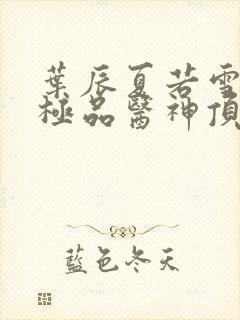 葉辰夏若雪
極品醫神頂
藍色冬天